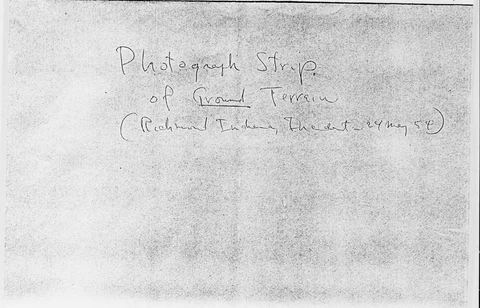 Photograph Strip.
of Ground Terrain
(Richmond Indiana, Incident - 24 May 54)